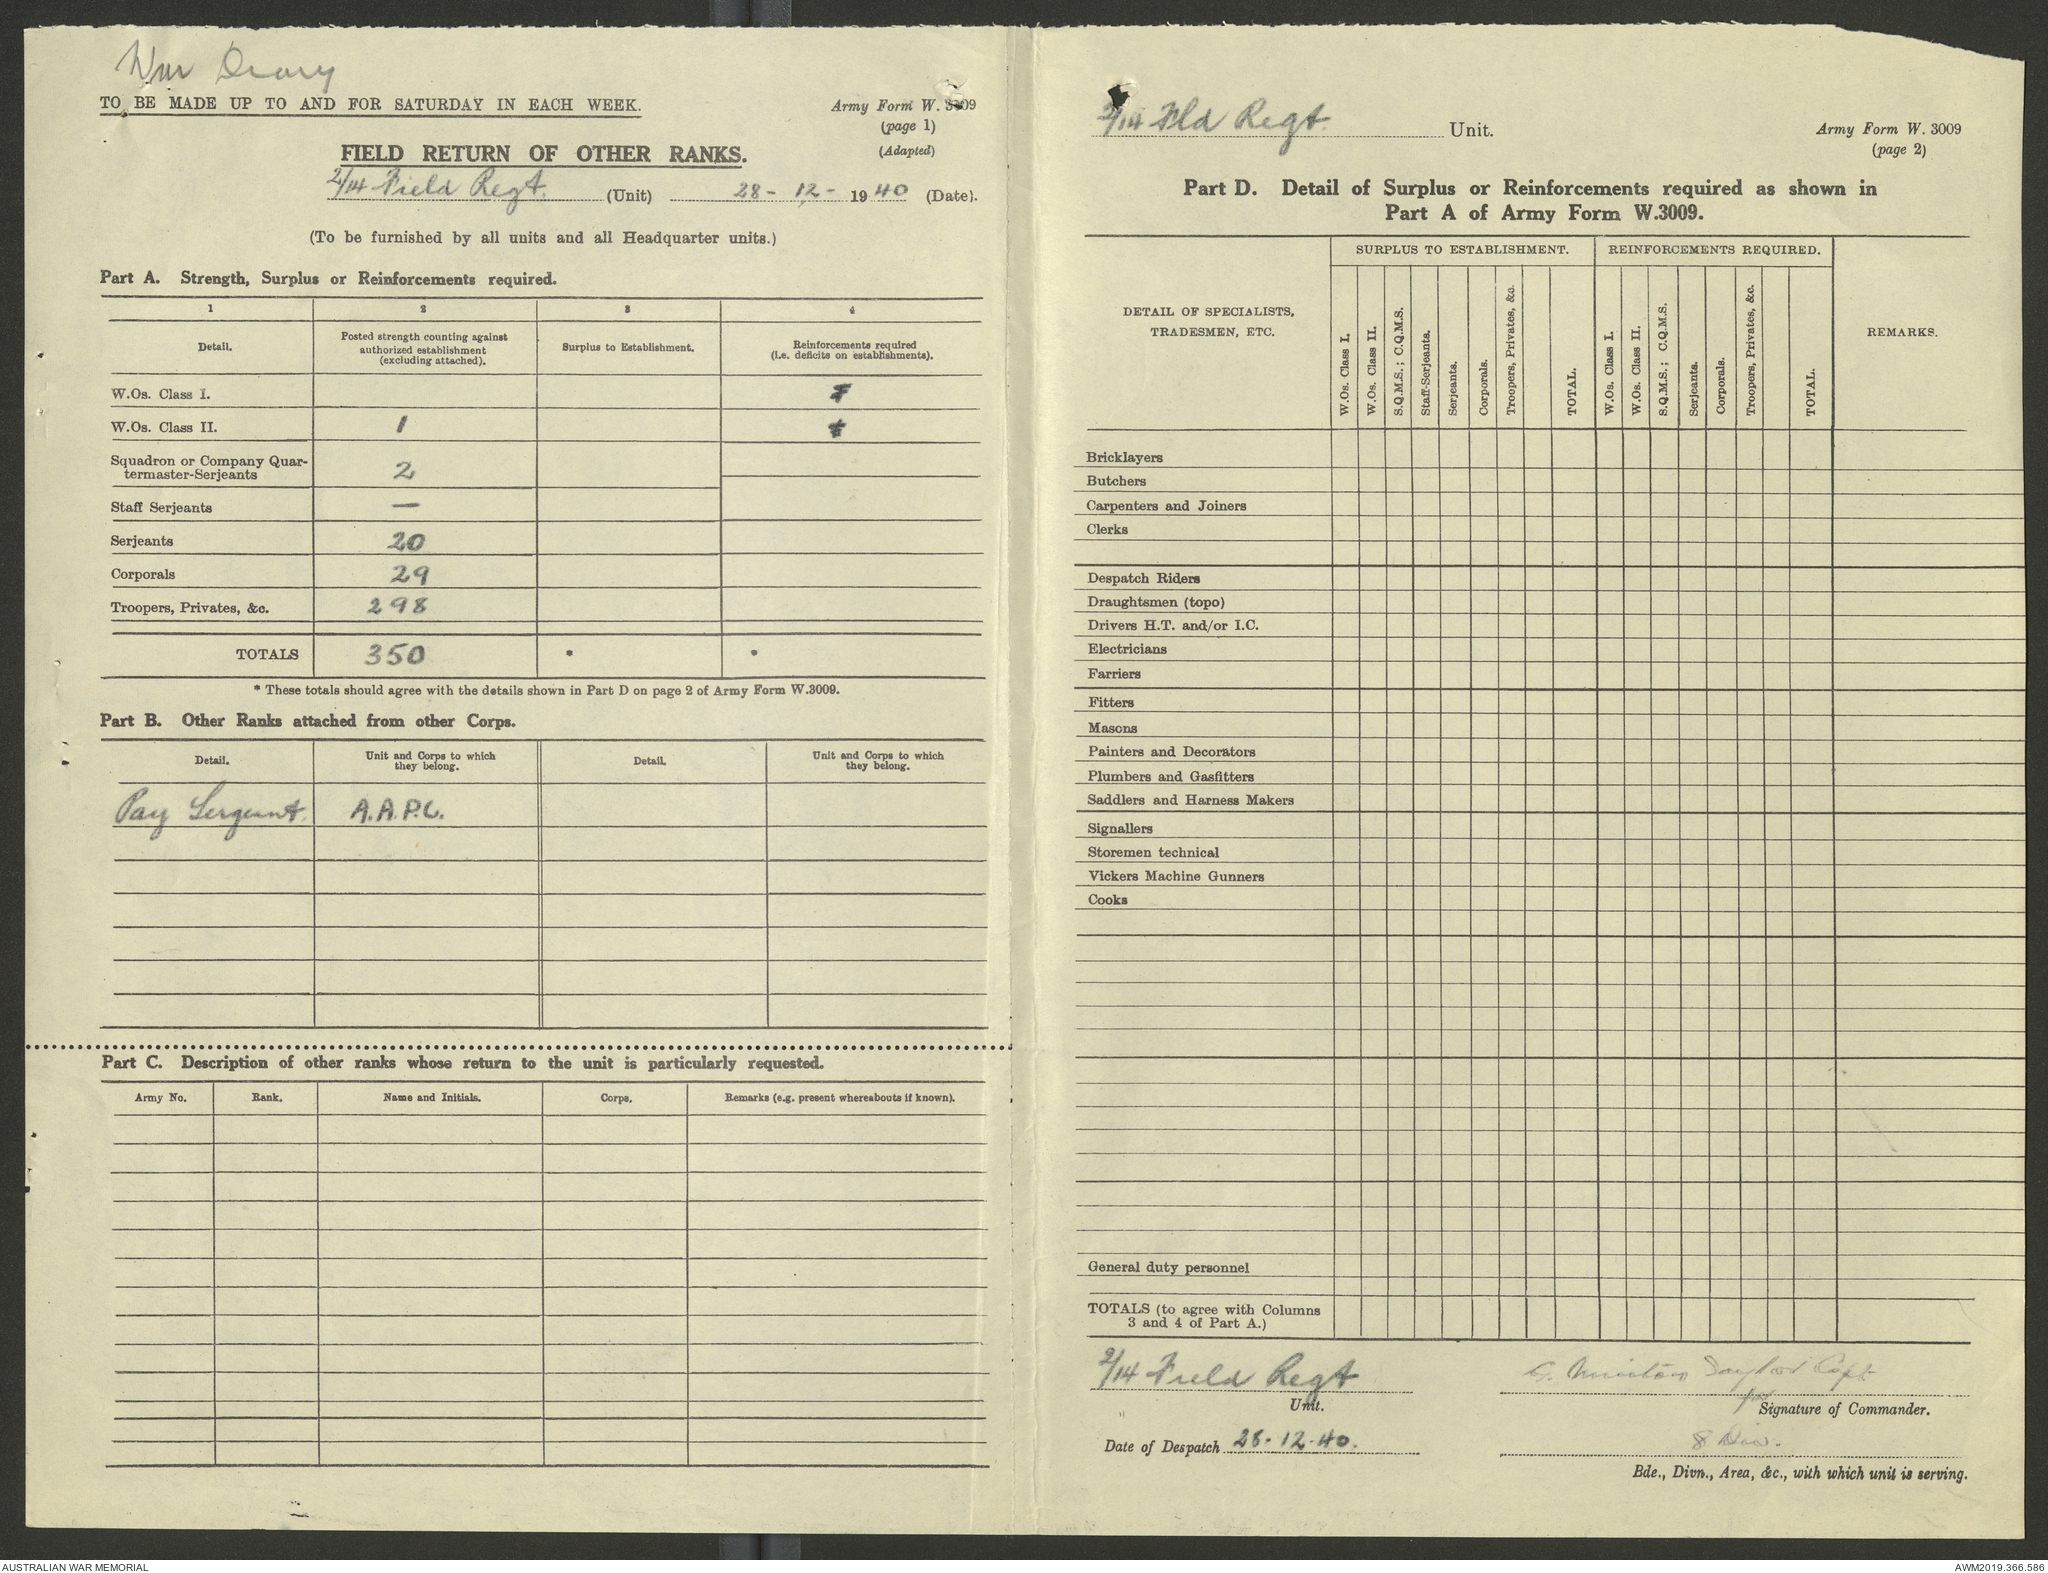 War Diary
TO BE MADE UP TO AND FOR SATURDAY IN EACH WEEK.
Army Form W. 3009
(page 1)
(Adapted)
FIELD RETURN OF OTHER RANKS.
2/14 Field Regt. (Unit) 28 - 12 - 1940 (Date).
(To be furnished by all units and all Headquarter units.)
Part A. Strength, Surplus or Reinforcements required.
1 2 3 4
Detail. Posted strength counting against authorized establishment (excluding attached). Surplus to Establishment. Reinforcements required (i.e. deficits on establishments).
W.Os. Class I.
W.Os. Class II. 1
Squadron or Company Quar-
termaster-Serjeants 2
Staff Serjeants —
Serjeants 20
Corporals 29
Troopers, Privates, &c. 298
TOTALS 350 * *
* These totals should agree with the details shown in Part D on page 2 of Army Form W.3009.
Part B. Other Ranks attached from other Corps.
Detail. Unit and Corps to which they belong. Detail. Unit and Corps to which they belong.
Pay Sergeant. A.A.P.C.
Part C. Description of other ranks whose return to the unit is particularly requested.
Army No. Rank. Name and Initials. Corps. Remarks (e.g. present whereabouts if known).
2/14 Fld Regt. Unit.
Army Form W. 3009
(page 2)
Part D. Detail of Surplus or Reinforcements required as shown in
Part A of Army Form W.3009.
DETAIL OF SPECIALISTS,
TRADESMEN, ETC.
SURPLUS TO ESTABLISHMENT. REINFORCEMENTS REQUIRED.
W.Os. Class I.
W.Os. Class II.
S.Q.M.S.; C.Q.M.S.
Staff-Serjeants.
Serjeants.
Corporals.
Troopers, Privates, &c.
TOTAL.
W.Os. Class I.
W.Os. Class II.
S.Q.M.S.; C.Q.M.S.
Serjeants.
Corporals.
Troopers, Privates, &c.
TOTAL.
REMARKS.
Bricklayers
Butchers
Carpenters and Joiners
Clerks
Despatch Riders
Draughtsmen (topo)
Drivers H.T. and/or I.C.
Electricians
Farriers
Fitters
Masons
Painters and Decorators
Plumbers and Gasfitters
Saddlers and Harness Makers
Signallers
Storemen technical
Vickers Machine Gunners
Cooks
General duty personnel
TOTALS (to agree with Columns
3 and 4 of Part A.)
2/14 Field Regt
Unit.
Taylor Capt
for
Signature of Commander.
Date of Despatch 28-12-40.
8 Div.
Bde., Divn., Area, &c., with which unit is serving.
AUSTRALIAN WAR MEMORIAL
AWM2019.366.586